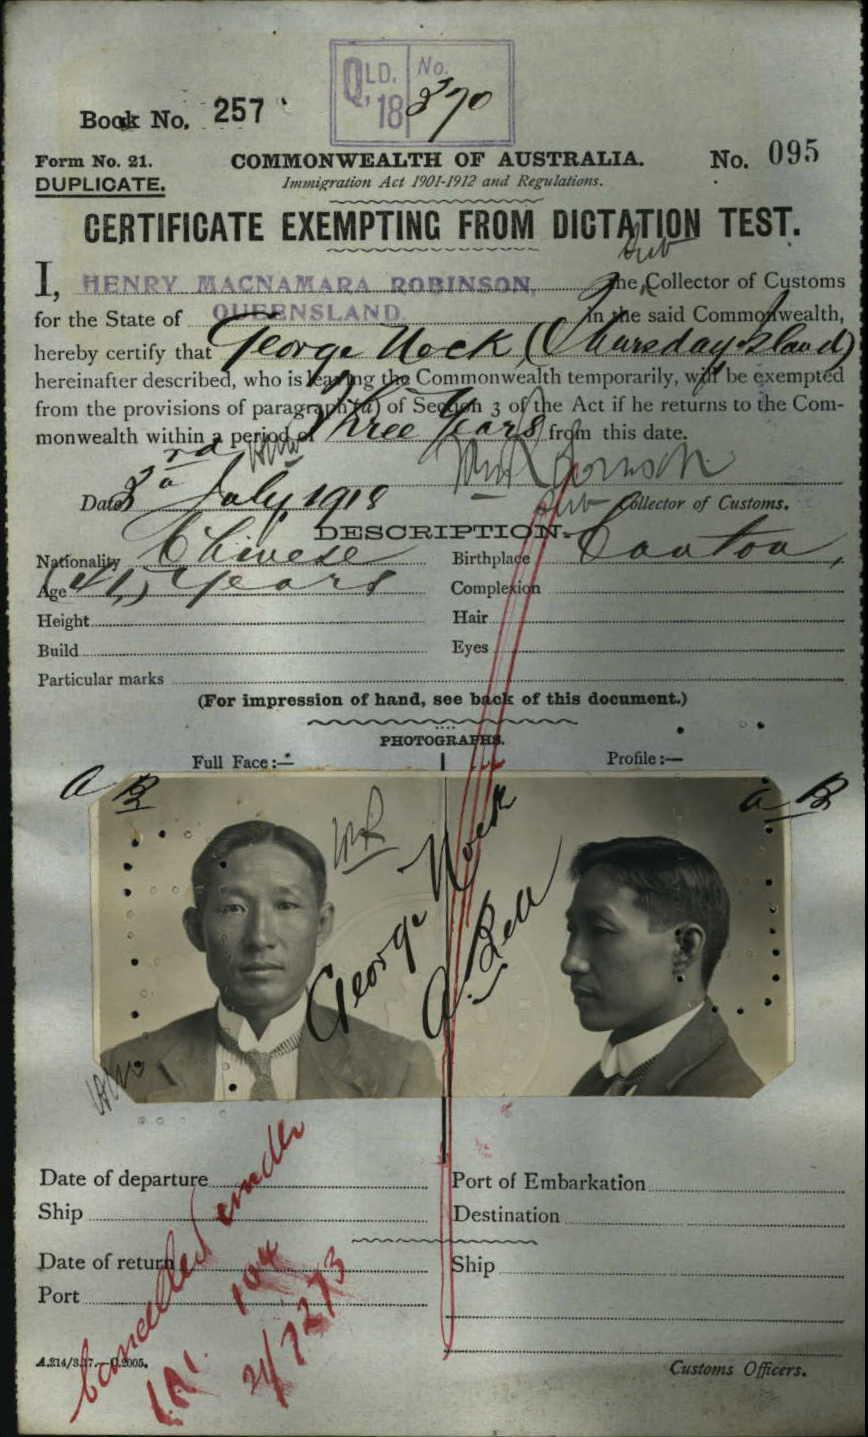 QLD. No.
18 370
Book No. 257
Form No. 21. COMMONWEALTH OF AUSTRALIA. No. 095
DUPLICATE. Immigration Act 1901-1912 and Regulations.
CERTIFICATE EXEMPTING FROM DICTATION TEST.
Sub
I, HENRY MACNAMARA ROBINSON, the Collector of Customs
for the State of QUEENSLAND. in the said Commonwealth,
hereby certify that George Nock (Thursday Island)
hereinafter described, who is leaving the Commonwealth temporarily, will be exempted
from the provisions of paragraph (a) of Section 3 of the Act if he returns to the Com-
monwealth within a period of Three Years from this date.
Date 3rd July 1918 Sub Collector of Customs.
DESCRIPTION.
Nationality Chinese Birthplace Canton,
Age (41) years Complexion
Height Hair
Build Eyes
Particular marks
(For impression of hand, see back of this document.)
PHOTOGRAPHS.
Full Face:— Profile:—
a B a B
George Nock
A. Bell
Date of departure Port of Embarkation
Ship Destination
Date of return Ship
Port
Cancelled under
Customs Officers.